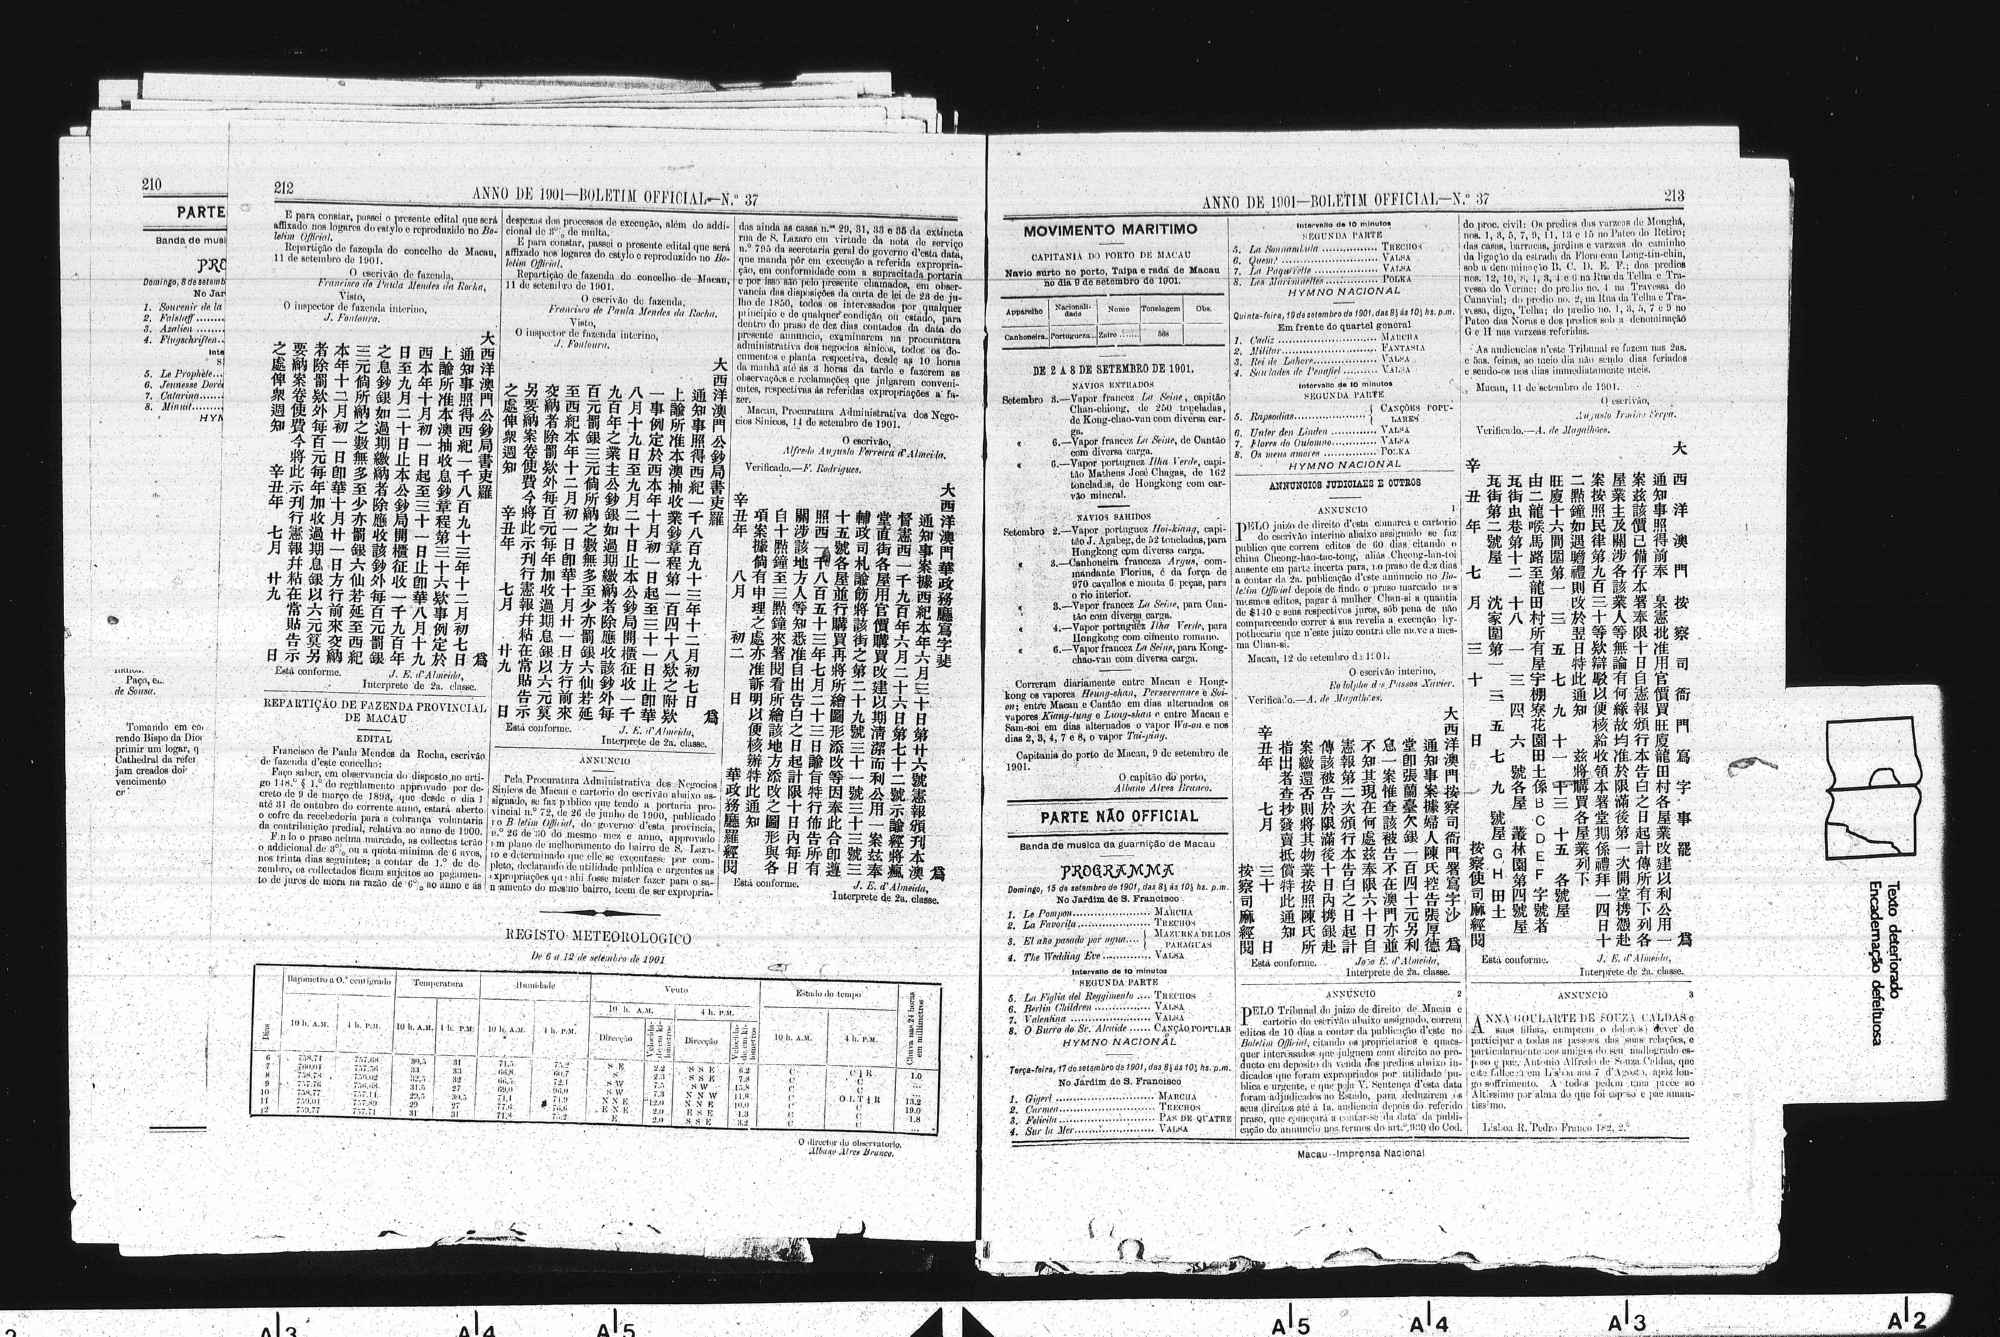 210
PARTE
Banda de musi
PRO
Domingo, 8 de setemb
No Jar
1. Souvenir de la
2. Falstaff
3. Azalien
4. Flugschriften
5. Le Prophète
6. Jeunesse Doré
7. Catarina
8. Minuit
HYM
de Sousa.
Tomando em co
rendo Bispo da Dio
primir um logar, q
Cathedral da refer
jam creados doi
vencimento
212
ANNO DE 1901—BOLETIM OFFICIAL—N.º 37
E para constar, passei o presente edital que será
affixado nos logares do estylo e reproduzido no Bo-
letim Official.
Repartição de fazenda do concelho de Macau,
11 de setembro de 1901.
O escrivão de fazenda,
Francisco de Paula Mendes da Rocha,
Visto,
O inspector de fazenda interino,
J. Fontoura.
大西洋澳門公鈔局書吏羅 爲
通知事照得西紀一千八百九十三年十二月初七日
上諭所准本澳抽收息鈔章程第三十六欵事例定於
西本年十月初一日起至三十一日止卽華八月十九
日至九月二十日止本公鈔局開櫃征收一千九百年
之息鈔銀如過期繳納者除應收該鈔外每百元罰銀
三元倘所納之數無多至少亦罰銀六仙若延至西紀
本年十二月初一日卽華十月廿一日方行前來交納
者除罰欵外每百元每年加收過期息銀以六元算另
要納案卷使費今將此示刊行憲報幷粘在常貼告示
之處俾衆週知 辛丑年 七月 廿九 日
Está conforme.
J. E. d'Almeida,
Interprete de 2a. classe.
REPARTIÇÃO DE FAZENDA PROVINCIAL
DE MACAU
EDITAL
Francisco de Paula Mendes da Rocha, escrivão
de fazenda d'este concelho:
Faço saber, em observancia do disposto no arti-
go 148.º § 1.º do regulamento approvado por de-
creto de 9 de março de 1893, que desde o dia 1
até 31 de outubro do corrente anno, estará aberto
o cofre da recebedoria para a cobrança voluntaria
da contribuição predial, relativa ao anno de 1900.
Findo o praso acima marcado, as collectas terão
o addicional de 3% ou a quota minima de 6 avos,
nos trinta dias seguintes; a contar de 1.º de de-
zembro, os collectados ficam sujeitos ao pagamen-
to de juros de mora na razão de 6% ao anno e ás
despezas dos processos de execução, além do addi-
cional de 3% de multa.
E para constar, passei o presente edital que será
affixado nos logares do estylo e reproduzido no Bo-
letim Official.
Repartição de fazenda do concelho de Macau,
11 de setembro de 1901.
O escrivão de fazenda,
Francisco de Paula Mendes da Rocha.
Visto,
O inspector de fazenda interino,
J. Fontoura.
大西洋澳門公鈔局書吏羅 爲
通知事照得西紀一千八百九十三年十二月初七日
上諭所准本澳抽收業鈔章程第一百四十八欵之附欵
一事例定於西本年十月初一日起至三十一日止卽華
八月十九日至九月二十日止本公鈔局開櫃征收一千
九百年之業主公鈔銀如過期繳納者除應收該鈔外每
百元罰銀三元倘所納之數無多至少亦罰銀六仙若延
至西紀本年十二月初一日卽華十月廿一日方行前來
交納者除罰欵外每百元每年加收過期息銀以六元算
另要納案卷使費今將此示刊行憲報幷粘在常貼告示
之處俾衆週知 辛丑年 七月 廿九 日
Está conforme.
J. E. d'Almeida,
Interprete de 2a. classe.
ANNUNCIO
Pela Procuratura Administrativa dos Negocios
Sinicos de Macau e cartorio do escrivão abaixo as-
signado, se faz publico que tendo a portaria pro-
vincial n.º 72, de 26 de junho de 1900, publicado
no Boletim Official, do governo d'esta provincia,
n.º 26 de 30 do mesmo mez e anno, approvado
um plano de melhoramento do bairro de S. Laza-
ro e determinado que elle se executasse por com-
pleto, declarando de utilidade publica e urgentes as
expropriações que ahi fosse mister fazer para o sa-
neamento do mesmo bairro, teem de ser expropria-
das ainda as casas n.ºs 29, 31, 33 e 35 da extincta
rua de S. Lazaro em virtude da nota de serviço
n.º 795 da secretaria geral do governo d'esta data,
que manda pôr em execução a referida expropria-
ção, em conformidade com a supracitada portaria
e por isso são pelo presente chamados, em obser-
vancia das disposições da carta de lei de 23 de ju-
lho de 1850, todos os interessados por qualquer
principio e de qualquer condição ou estado, para
dentro do praso de dez dias contados da data do
presente annuncio, examinarem na procuratura
administrativa dos negocios sinicos, todos os do-
cumentos e planta respectiva, desde as 10 horas
da manhã até ás 3 horas da tarde e fazerem as
observações e reclamações que julgarem conveni-
entes, respectivas ás referidas expropriações a fa-
zer.
Macau, Procuratura Administrativa dos Nego-
cios Sinicos, 11 de setembro de 1901.
O escrivão,
Alfredo Augusto Ferreira d'Almeida.
Verificado.—F. Rodrigues.
大西洋澳門華政務廳寫字斐 爲
通知事案據西紀本年六月三十日第廿六號憲報頒刊本澳
督憲西一千九百年六月二十六日第七十二號示諭經將瘋
堂直街各屋用官價購買改建以期清潔而利公用一案玆奉
輔政司札諭飭將該街之第二十九號三十一號三十三號三
十五號各屋並行購買再將所繪圖形添改等因奉此合卽遵
照西一千八百五十三年七月二十三日諭旨特行佈告所有
關涉該地方人等知悉准自出告白之日起計限十日內每日
自十點鐘至三點鐘來署閱看所繪該地方添改之圖形與各
項案據倘有申理之處亦准訴明以便核辦特此通知
辛丑年 八月 初二 日 華政務廳羅經閱
Está conforme.
J. E. d'Almeida,
Interprete de 2a. classe.
REGISTO METEOROLOGICO
De 6 a 12 de setembro de 1901
Dias
Barometro a O.º centigrado
Temperatura
Humidade
Vento
Estado do tempo
Chuva nas 24 horas em millimetros
10 h. A.M. 4 h. P.M.
Direcção
Velocidade em kilometros
O director do observatorio,
Albano Alves Branco.
ANNO DE 1901—BOLETIM OFFICIAL—N.º 37
213
MOVIMENTO MARITIMO
CAPITANIA DO PORTO DE MACAU
Navio surto no porto, Taipa e rada de Macau
no dia 9 de setembro de 1901.
Apparelho Nacionalidade Nome Tonelagem Obs.
Canhoneira. Portugueza. Zaire 558
DE 2 A 8 DE SETEMBRO DE 1901.
NAVIOS ENTRADOS
Setembro 3.—Vapor francez La Seine, capitão
Chan-chiong, de 250 toneladas,
de Kong-chao-van com diversa car-
ga.
« 6.—Vapor francez La Seine, de Cantão
com diversa carga.
« 6.—Vapor portuguez Ilha Verde, capi-
tão Matheus José Chagas, de 162
toneladas, de Hongkong com car-
vão mineral.
NAVIOS SAHIDOS
Setembro 2.—Vapor portuguez Hoi-kiang, capi-
tão J. Agabeg, de 52 toneladas, para
Hongkong com diversa carga.
« 3.—Canhoneira franceza Argus, com-
mandante Florius, é da força de
970 cavallos e monta 6 peças, para
o rio interior.
« 3.—Vapor francez La Seine, para Can-
tão com diversa carga.
« 4.—Vapor portuguez Ilha Verde, para
Hongkong com cimento romano.
« 6.—Vapor francez La Seine, para Kong-
chao-van com diversa carga.
Correram diariamente entre Macau e Hong-
kong os vapores Heung-shan, Perseverance e Soi-
on; entre Macau e Cantão em dias alternados os
vapores Kiang-tung e Lung-shan e entre Macau e
Sam-soi em dias alternados o vapor Wa-on e nos
dias 2, 3, 4, 7 e 8, o vapor Tai-ping.
Capitania do porto de Macau, 9 de setembro de
1901.
O capitão do porto,
Albano Alves Branco.
PARTE NÃO OFFICIAL
Banda de musica da guarnição de Macau
PROGRAMMA
Domingo, 15 de setembro de 1901, das 8½ ás 10½ hs. p.m.
No Jardim de S. Francisco
1. Le Pompon MARCHA
2. La Favorita TRECHOS
3. El año pasado por agua MAZURKA DE LOS PARAGUAS
4. The Wedding Eve VALSA
Intervallo de 10 minutos
SEGUNDA PARTE
5. La Figlia del Reggimento TRECHOS
6. Berlin Children VALSA
7. Valentina VALSA
8. O Burro do Sr. Alcaide CANÇÃO POPULAR
HYMNO NACIONAL
Terça-feira, 17 de setembro de 1901, das 8½ ás 10½ hs. p.m.
No Jardim de S. Francisco
1. Gigerl MARCHA
2. Carmen TRECHOS
3. Felicita PAS DE QUATRE
4. Sur la Mer VALSA
Intervallo de 10 minutos
SEGUNDA PARTE
5. La Sonnambula TRECHOS
6. Quem? VALSA
7. La Paquerette VALSA
8. Les Marionnettes POLKA
HYMNO NACIONAL
Quinta-feira, 19 de setembro de 1901, das 8½ ás 10½ hs. p.m.
Em frente do quartel general
1. Cadiz MARCHA
2. Militar FANTASIA
3. Rei de Lahore VALSA
4. Saudades de Penafiel VALSA
Intervallo de 10 minutos
SEGUNDA PARTE
5. Rapsodias CANÇÕES POPULARES
6. Unter den Linden VALSA
7. Flores do Outomno VALSA
8. Os meus amores POLKA
HYMNO NACIONAL
ANNUNCIOS JUDICIAES E OUTROS
ANNUNCIO 1
PELO juizo de direito d'esta comarca e cartorio
do escrivão interino abaixo assignado se faz
publico que correm editos de 60 dias citando o
china Cheong-hao-tac-tong, aliás Cheong-lan-toi
ausente em parte incerta para, no praso de dez dias
a contar da 2a. publicação d'este annuncio no Bo-
letim Official depois de findo o praso marcado nos
mesmos editos, pagar á mulher Chan-si a quantia
de $140 e seus respectivos juros, sob pena de não
comparecendo correr á sua revelia a execução hy-
pothecaria que n'este juizo contra elle move a mes-
ma Chan-si.
Macau, 12 de setembro de 1901.
O escrivão interino,
Eudolpho dos Passos Xavier.
Verificado.—A. de Magalhães.
大西洋澳門按察司衙門署寫字沙 爲
通知事案據婦人陳氏控告張厚德
堂卽張蘭臺欠銀一百四十元另利
息一案惟查該被告不在澳門亦並
不知其現在何處玆奉限六十日自
憲報第二次頒行本告白之日起計
傳該被告於限滿後十日內携銀赴
案繳還否則將其物業按照陳氏所
指出者查抄發賣抵償特此通知
辛丑年 七月 三十 日
按察司麻經閱
Está conforme.
João E. d'Almeida,
Interprete de 2a. classe.
ANNUNCIO 2
PELO Tribunal do juizo de direito de Macau e
cartorio do escrivão abaixo assignado, correm
editos de 10 dias a contar da publicação d'este no
Boletim Official, citando os proprietarios e quaes-
quer interessados que julguem com direito ao pro-
ducto em deposito da venda dos predios abaixo in-
dicados que foram expropriados por utilidade pu-
blica e urgente, e que pela V. Sentença d'esta data
foram adjudicados ao Estado, para deduzirem os
seus direitos até á 1a. audiencia depois do referido
praso, que começará a contar-se da data da publi-
cação do annuncio nos termos do art.º 930 do Cod.
do proc. civil: Os predios das varzeas de Monghá,
nos. 1, 3, 5, 7, 9, 11, 13 e 15 no Pateo do Retiro;
das casas, barracas, jardins e varzeas do caminho
da ligação da estrada da Flora com Long-tin-chin,
sob a denominação B. C. D. E. F.; dos predios
nos. 12, 10, 8, 1, 3, 4 e 6 na Rua da Telha e Tra-
vessa do Verme; do predio no. 4 na Travessa do
Canavial; do predio no. 2, na Rua da Telha e Tra-
vessa, digo, Telha; do predio no. 1, 3, 5, 7 e 9 no
Pateo das Noras e dos predios sob a denominação
G e H nas varzeas referidas.
As audiencias n'este Tribunal se fazem nas 2as.
e 5as. feiras, ao meio dia não sendo dias feriados
e sendo-os nos dias immediatamente uteis.
Macau, 11 de setembro de 1901.
O escrivão,
Verificado.—A. de Magalhães.
大西洋澳門按察司衙門寫字事羆 爲
通知事照得前奉 臬憲批准用官價買旺廈龍田村各屋業改建以利公用一
案玆該價已備存本署奉限十日自憲報頒行本告白之日起計傳所有下列各
屋業主及關涉各該業人等無論有何緣故均准於限滿後第一次開堂携憑赴
案按照民律第九百三十等欵辯駁以便核給收領本署堂期係禮拜一四日十
二點鐘如遇瞻禮則改於翌日特此通知 玆將購買各屋業列下
旺廈十六間圍第一 三 五 七 九 十一 十三 十五 各號屋
由二龍喉馬路至龍田村所有屋宇棚寮花園田土係B C D E F字號者
瓦街虫巷第十二 十 八 一 三 四 六 號各屋 叢林園第四號屋
瓦街第二號屋 沈家圍第一 三 五 七 九 號屋 G,H田土
辛丑年 七月 三十 日 按察使司麻經閱
Está conforme.
J. E. d'Almeida,
Interprete de 2a. classe.
ANNUNCIO 3
ANNA GOULARTE DE SOUZA CALDAS e
suas filhas, cumprem o doloroso dever de
participar a todas as pessoas das suas relações, e
particularmente aos amigos do seu mallogrado es-
poso e pae, Antonio Alfredo de Souza Caldas, que
este falleceu em Lisboa aos 7 d'Agosto, após lon-
go soffrimento. A todos pedem uma prece ao
Altissimo por alma do que foi esposo e pae aman-
tissimo.
Lisboa R. Pedro Franco 182, 2.º
Macau--Imprensa Nacional
Texto deteriorado
Encadernação defeituosa
A|3 A|4 A|5
A|5 A|4 A|3 A|2